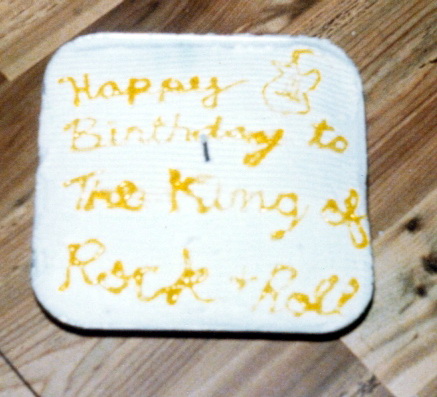 Happy
Birthday to
The King of
Rock + Roll